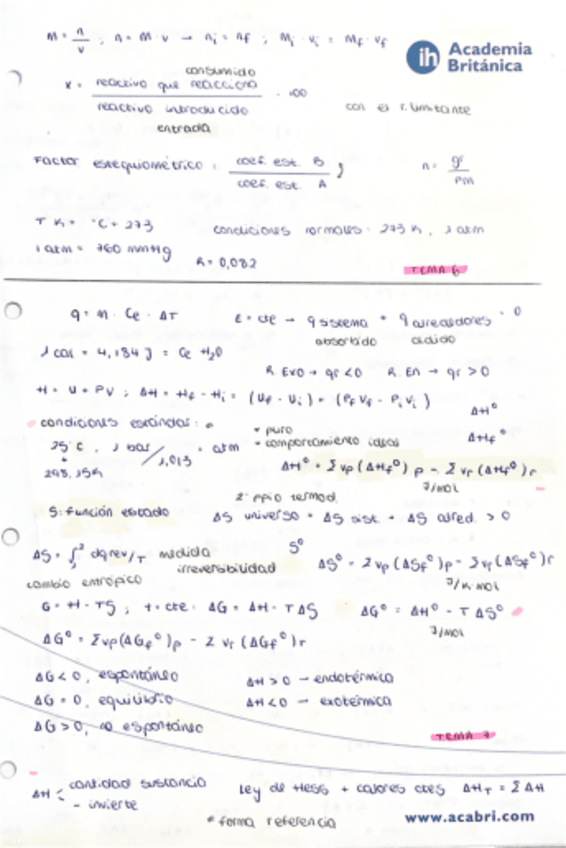 M = n/v ; n = M · v → ni = nf ; Mi · vi = Mf · vf
ih Academia Británica
consumido
x = reactivo que reacciona / reactivo introducido · 100
con el r. limitante
entrada
Factor estequiométrico = coef. est. B / coef. est. A ; n = gr / Pm
T K = °C + 273 condiciones normales = 273 K, 1 atm
1 atm = 760 mmHg R = 0,082
TEMA 6
q = m · Ce · ΔT E = cte → q sistema + q alrededores = 0
absorbido cedido
1 cal = 4,184 J = Ce H2O
R. Exo → qr < 0 R. En → qr > 0
H = U + PV ; ΔH = Hf - Hi = (Uf - Ui) + (Pf Vf - Pi Vi)
condiciones estándar: ΔH°
25°C, 1 bar / 1,013 = atm * puro ΔHf°
298,15K * comportamiento ideal
ΔH° = Σ vp (ΔHf°) p - Σ vr (ΔHf°) r
J/mol
2° ppio termod.
S: función estado ΔS universo = ΔS sist. + ΔS alred. > 0
ΔS = ∫₁² dqrev/T medida irreversibilidad S°
ΔS° = Σ vp (ΔSf°)p - Σ vr (ΔSf°) r
cambio entrópico J/K·mol
G = H - TS ; t = cte. ΔG = ΔH - T ΔS ΔG° = ΔH° - T ΔS°
J/mol
ΔG° = Σ vp (ΔGf°)p - Σ vr (ΔGf°) r
ΔG < 0, espontáneo ΔH > 0 → endotérmica
ΔG = 0, equilibrio ΔH < 0 → exotérmica
ΔG > 0, no espontáneo
TEMA 7
ΔH < cantidad sustancia Ley de Hess + calores ctes ΔHT = Σ ΔH
- invierte
* forma referencia
www.acabri.com